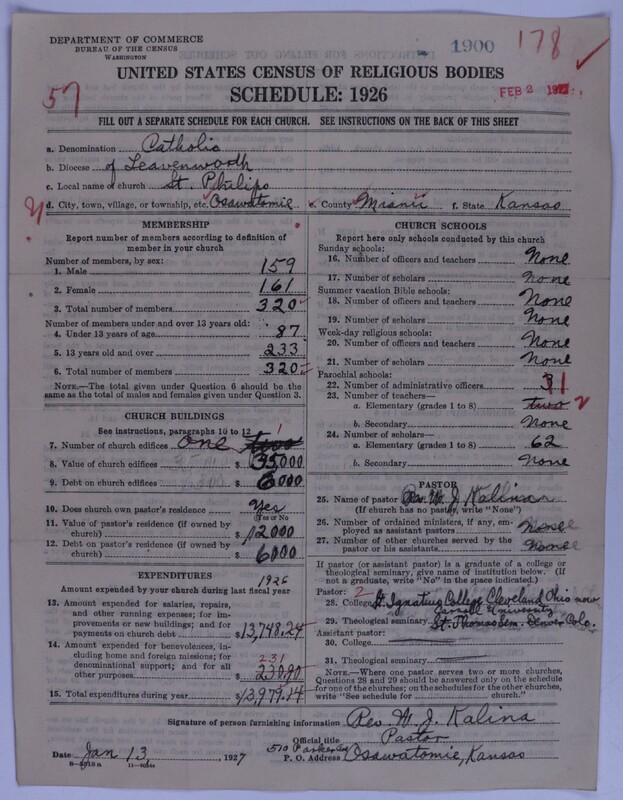 DEPARTMENT OF COMMERCE
BUREAU OF THE CENSUS
WASHINGTON
1900
178
57
UNITED STATES CENSUS OF RELIGIOUS BODIES
SCHEDULE: 1926
FEB 2
FILL OUT A SEPARATE SCHEDULE FOR EACH CHURCH. SEE INSTRUCTIONS ON THE BACK OF THIS SHEET
a. Denomination Catholic
b. Diocese of Leavenworth
c. Local name of church St. Philips
d. City, town, village, or township, etc. Osawatomie e. County Miami f. State Kansas
MEMBERSHIP
Report number of members according to definition of
member in your church
Number of members, by sex:
1. Male 159
2. Female 161
3. Total number of members 320
Number of members under and over 13 years old:
4. Under 13 years of age 87
5. 13 years old and over 233
6. Total number of members 320
NOTE.—The total given under Question 6 should be
same as the total of males and females given under Question 3.
CHURCH BUILDINGS
See instructions, paragraphs 10 to 12
7. Number of church edifices one two 1
8. Value of church edifices $ 35000
9. Debt on church edifices $ 6000
10. Does church own pastor's residence Yes
(Yes or No)
11. Value of pastor's residence (if owned by
church) $ 12000
12. Debt on pastor's residence (if owned by
church) $ 6000
EXPENDITURES
1926
Amount expended by your church during last fiscal year
13. Amount expended for salaries, repairs,
and other running expenses; for im-
provements or new buildings; and for
payments on church debt $13,748.24
14. Amount expended for benevolences, in-
cluding home and foreign missions; for
denominational support; and for all
other purposes $ 230.90
231
15. Total expenditures during year $13,979.14
CHURCH SCHOOLS
Report here only schools conducted by this church
Sunday schools:
16. Number of officers and teachers None
17. Number of scholars None
Summer vacation Bible schools:
18. Number of officers and teachers None
19. Number of scholars None
Week-day religious schools:
20. Number of officers and teachers None
21. Number of scholars None
Parochial schools:
22. Number of administrative officers 3 1
23. Number of teachers—
a. Elementary (grades 1 to 8) two 2
b. Secondary None
24. Number of scholars—
a. Elementary (grades 1 to 8) 62
b. Secondary None
PASTOR
25. Name of pastor Rev. W. J. Kalina
(If church has no pastor, write "None")
26. Number of ordained ministers, if any, em-
ployed as assistant pastors None
27. Number of other churches served by the
pastor or his assistants None
If pastor (or assistant pastor) is a graduate of a college or
theological seminary, give name of institution below. (If
not a graduate, write "No" in the space indicated.)
Pastor: 2
28. College St. Ignatius College Cleveland Ohio now
Carroll University
29. Theological seminary St. Thomas Sem. Denver Colo.
Assistant pastor:
30. College
31. Theological seminary
NOTE.—Where one pastor serves two or more churches,
Questions 28 and 29 should be answered only on the schedule
for one of the churches; on the schedules for the other churches,
write "See schedule for church."
Signature of person furnishing information Rev. W. J. Kalina
Official title Pastor
Date Jan 13, 1927
510 Parker
P. O. Address Osawatomie, Kansas